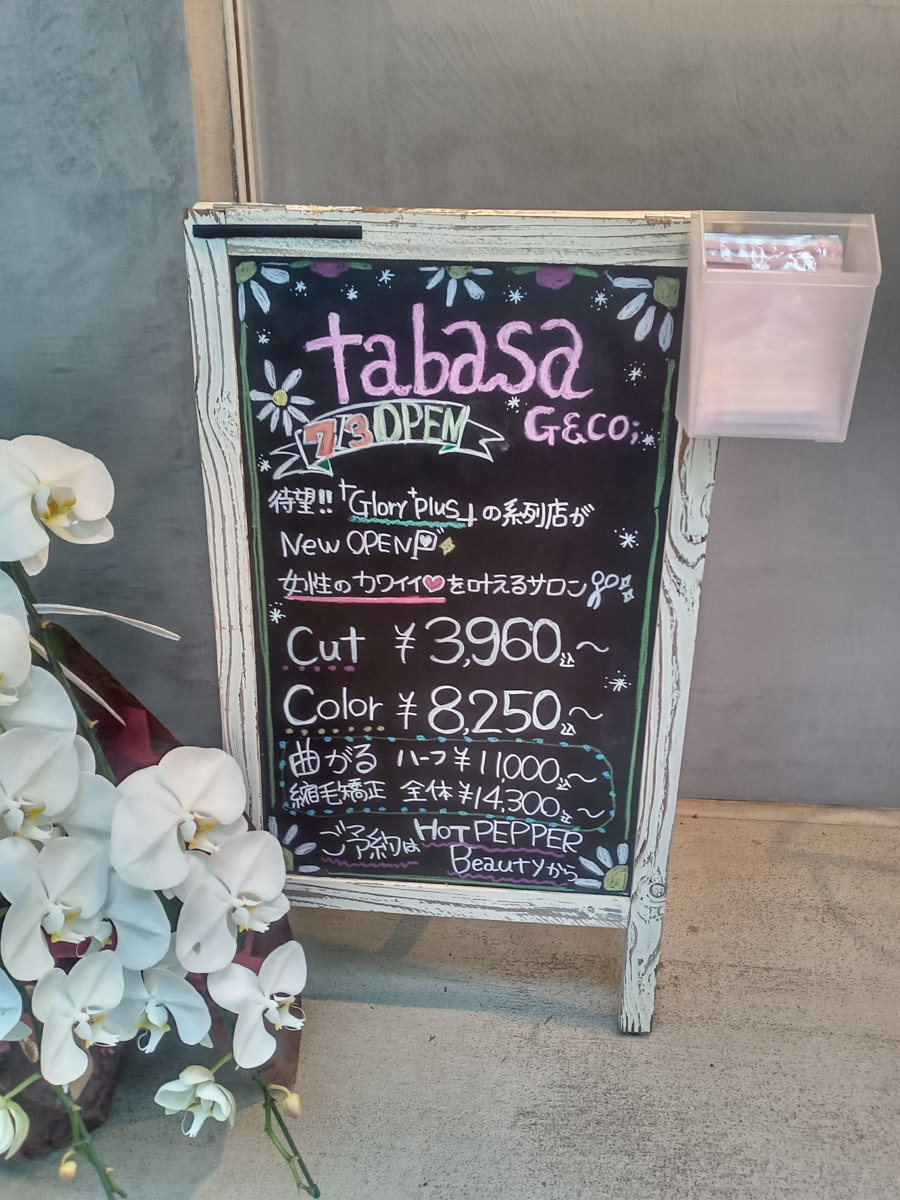 tabasa
7/3 OPEN
G&CO;
待望!! 「Glory plus」の系列店が
New OPEN
女性のカワイイ♥を叶えるサロン
Cut ¥3,960込〜
Color ¥8,250込〜
曲がる ハーフ¥11,000込〜
縮毛矯正 全体¥14,300込〜
ご予約は HOT PEPPER
Beautyから